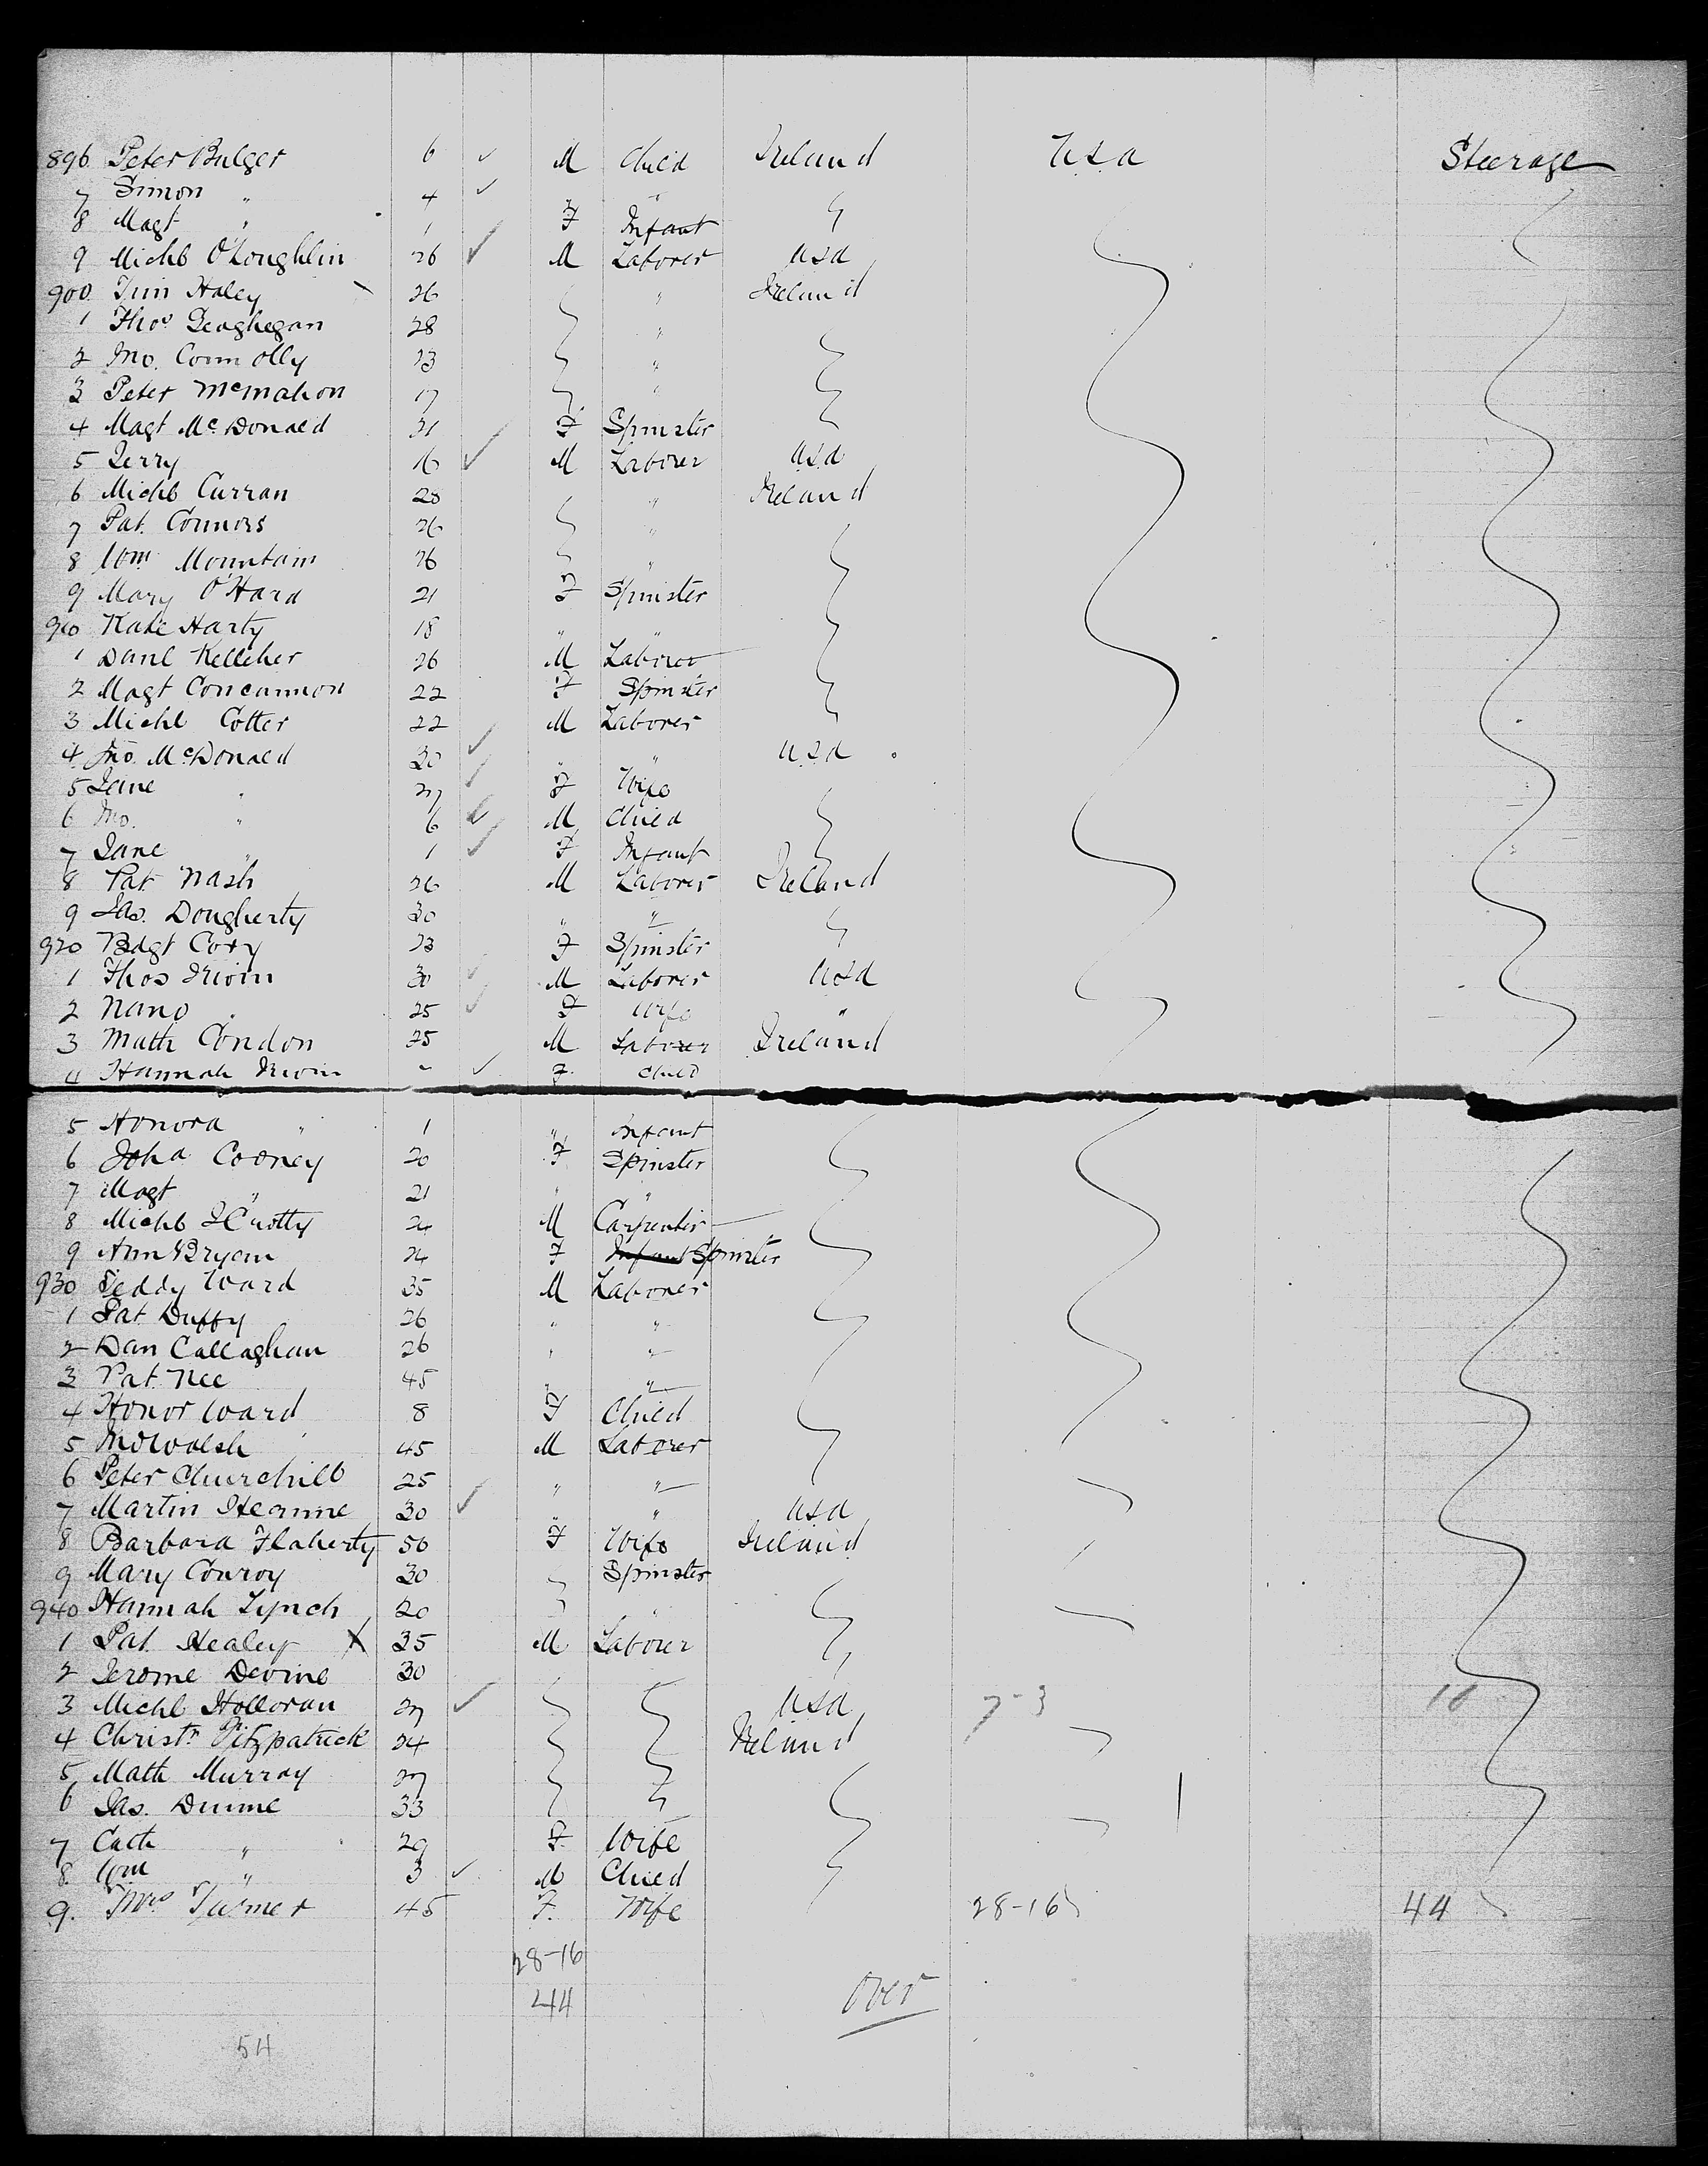 896 Peter Bulger 6 ✓ M Child Ireland U.S.A Steerage
7 Simon " 4 ✓ "
8 Magt " 1 F Infant
9 Michl O'Loughlin 26 ✓ M Laborer USA
900 Tim Haley 26 " Ireland
1 Thos Geoghegan 28 "
2 Jno. Connolly 23 "
3 Peter McMahon 17 "
4 Magt McDonald 31 F Spinster
5 Jerry 16 ✓ M Laborer USA
6 Michl Curran 28 " Ireland
7 Pat. Connors 26 "
8 Wm Mountain 26 "
9 Mary O'Hara 21 F Spinster
910 Kate Harty 18 " "
1 Danl Kelleher 26 M Laborer
2 Magt Concannon 22 F Spinster
3 Michl Cotter 22 M Laborer
4 Jno. McDonald 30 ✓ " " USA
5 Jane " 27 ✓ F Wife
6 Jno. " 6 ✓ M Child
7 Jane " 1 ✓ F Infant
8 Pat Nash 26 M Laborer Ireland
9 Jas. Dougherty 30 " "
920 Bdgt Cory 23 F Spinster
1 Thos Irwin 30 ✓ M Laborer USA
2 Nano 25 ✓ F Wife "
3 Math Condon 25 M Laborer Ireland
4 Hannah Irwin ✓ F Child
5 Honora " 1 " Infant
6 Joha Cooney 20 F Spinster
7 Magt " 21 " "
8 Michl Crotty 24 M Carpenter
9 Ann Bryan 24 F Infant Spinster
930 Teddy Ward 35 M Laborer
1 Pat Duffy 26 " "
2 Dan Callaghan 26 " "
3 Pat. Nee 45 " "
4 Honor Ward 8 F Child
5 Jno Walsh 45 M Laborer
6 Peter Churchill 25 " "
7 Martin Heanne 30 ✓ " " USA
8 Barbara Flaherty 50 F Wife Ireland
9 Mary Conroy 30 Spinster
940 Hannah Lynch 20 "
1 Pat Healey X 35 M Laborer
2 Jerome Devine 30
3 Michl Holloran 27 ✓ USA 7-3 10
4 Christr Fitzpatrick 24 Ireland
5 Math Murray 27
6 Jas. Dunne 33
7 Cath " 29 F. Wife
8. Wm " 3 ✓ M Child
9. Mrs Turner 45 F. Wife 28-16 44
28-16
44
Over
54